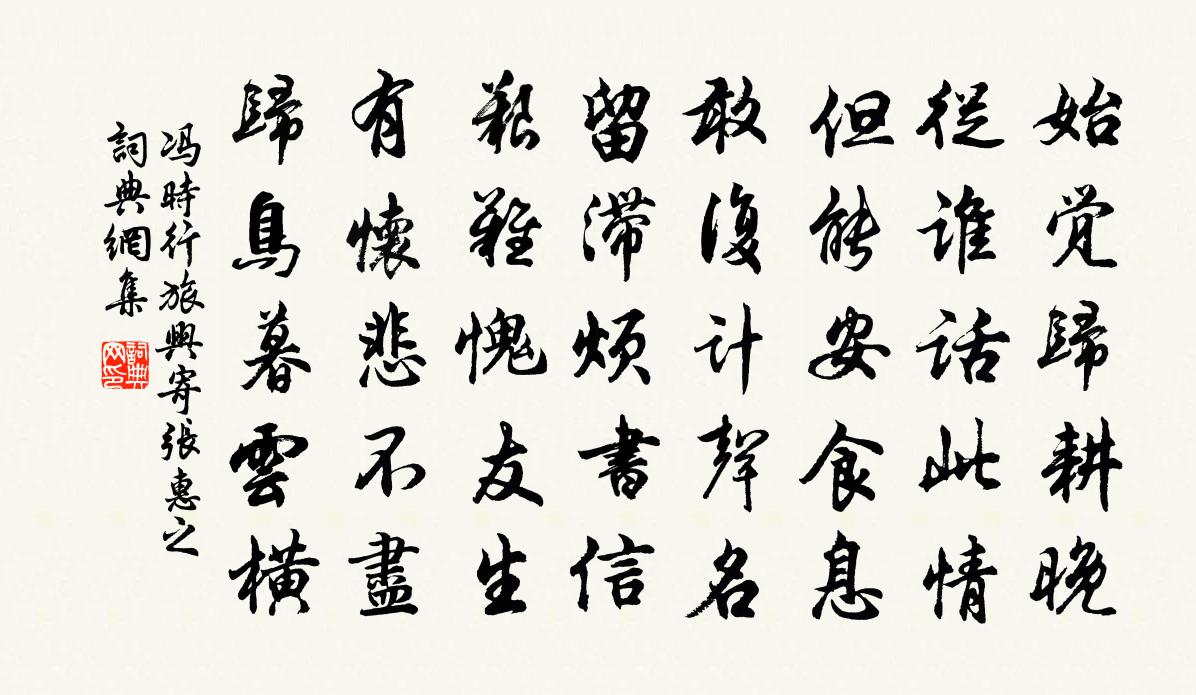 始觉歸耕晚
從誰話此情
但能安食息
敢復計聲名
留滯煩書信
艱難愧友生
有懷悲不盡
歸鳥暮雲橫
冯時行旅興寄張惠之
詞典網集
詞典网印